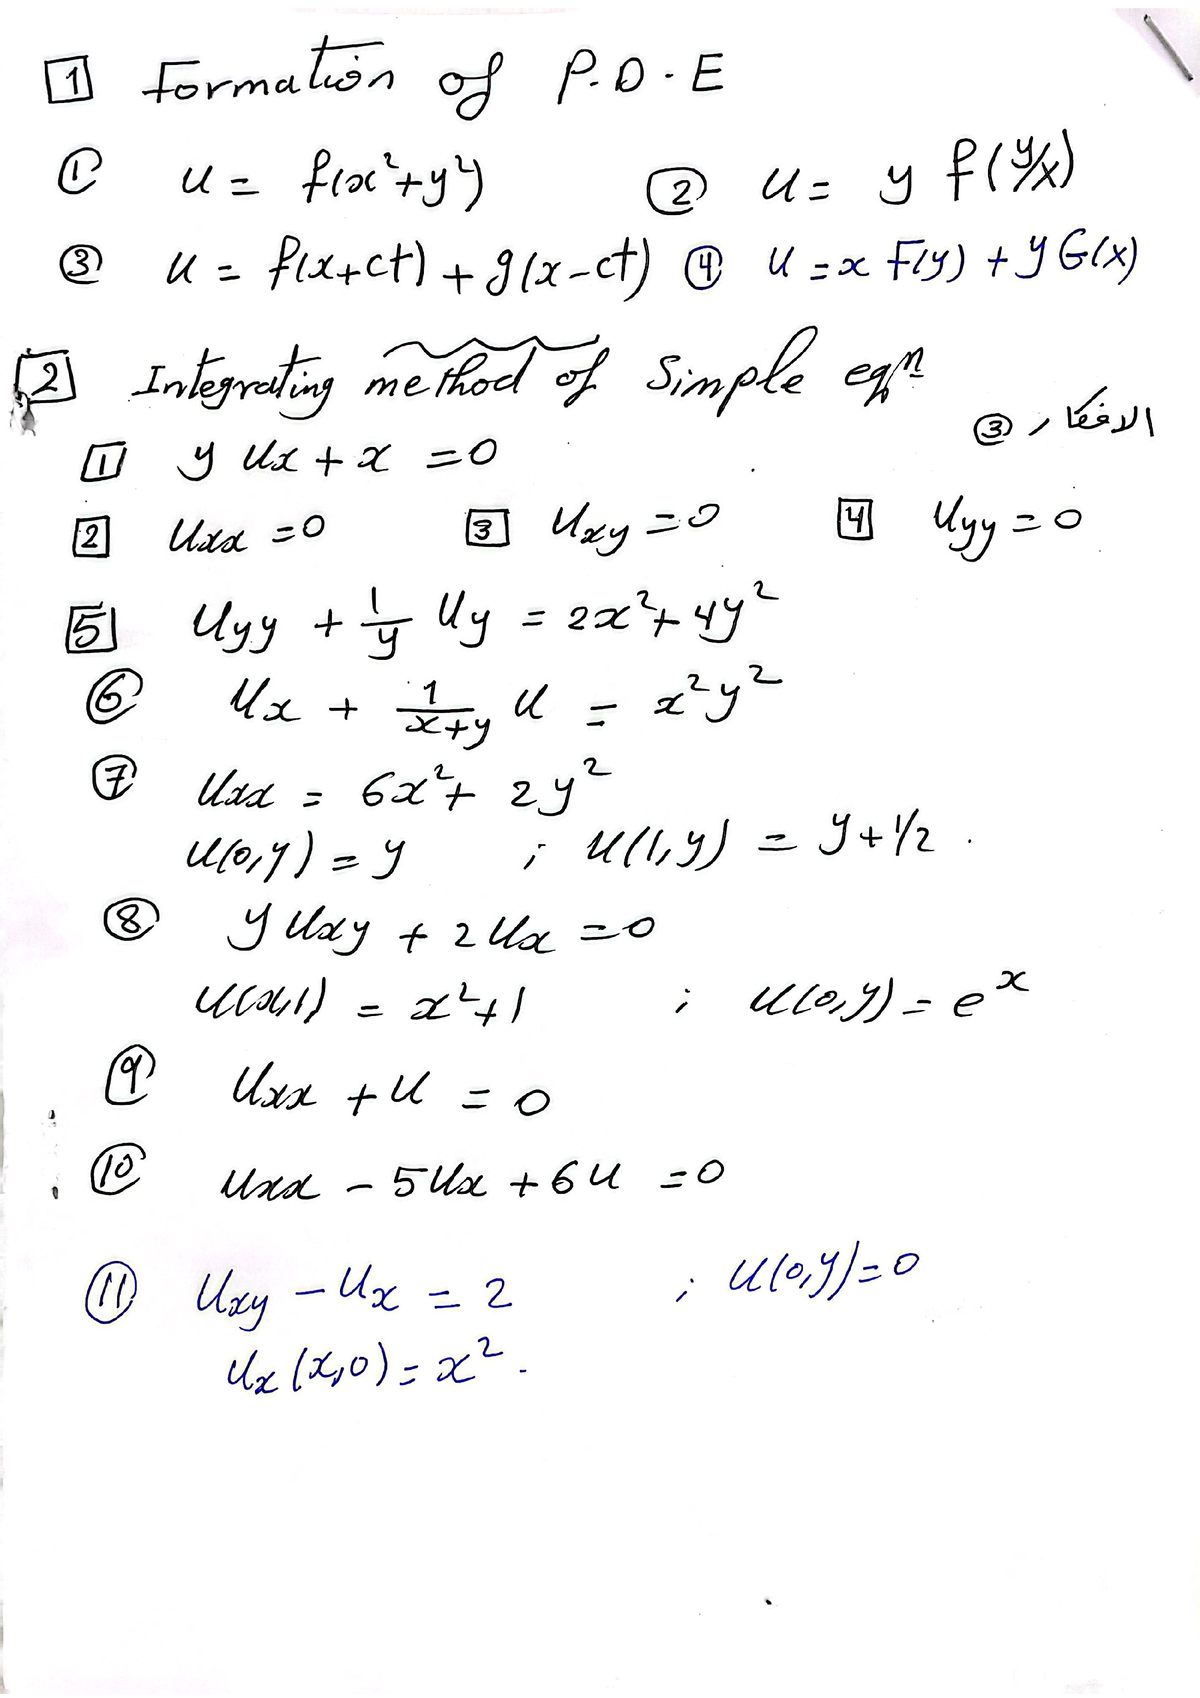 1 Formation of P.D.E
① u = f(x²+y²) ② u = y f(y/x)
③ u = f(x+ct) + g(x-ct) ④ u = x F(y) + y G(x)
2 Integrating method of Simple eqn
③ الافكار
1 y Ux + x = 0
2 Uxx = 0 3 Uxy = 0 4 Uyy = 0
5 Uyy + 1/y Uy = 2x² + 4y²
⑥ Ux + 1/(x+y) U = x²y²
⑦ Uxx = 6x² + 2y²
U(0,y) = y ; U(1,y) = y + 1/2 .
⑧ y Uxy + 2 Ux = 0
U(x,1) = x²+1 ; U(0,y) = e^x
⑨ Uxx + U = 0
⑩ Uxx - 5Ux + 6U = 0
⑪ Uxy - Ux = 2 ; U(0,y) = 0
Ux(x,0) = x² .